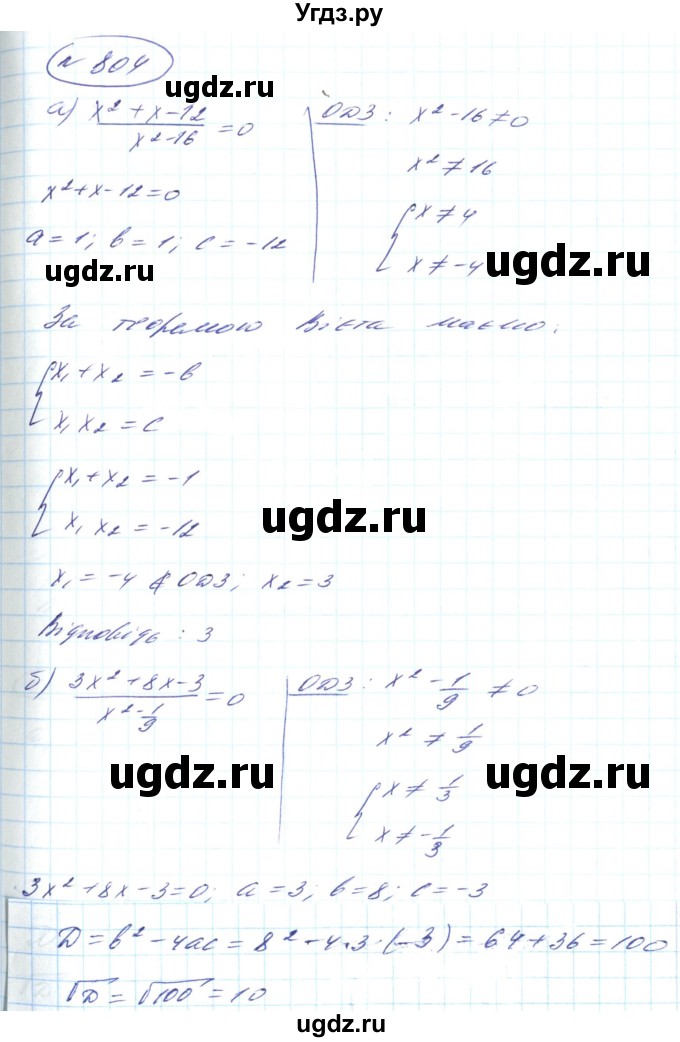 Угдз.ру
n 804
ugdz.ru ugdz.ru
а) x² + x - 12 / x² - 16 = 0 ОДЗ : x² - 16 ≠ 0
x² ≠ 16
x² + x - 12 = 0
{ x ≠ 4
a = 1; b = 1; c = -12
x ≠ -4
ugdz.ru ugdz.ru
За теоремою Вієта маємо:
{ x₁ + x₂ = -b
x₁ x₂ = c
{ x₁ + x₂ = -1
x₁ x₂ = -12
ugdz.ru
x₁ = -4 ∉ ОДЗ; x₂ = 3
Відповідь : 3
б) 3x² + 8x - 3 / x² - 1/9 = 0 ОДЗ : x² - 1/9 ≠ 0
x² ≠ 1/9
ugdz.ru ugdz.ru
{ x ≠ 1/3
x ≠ -1/3
3x² + 8x - 3 = 0; a = 3; b = 8; c = -3
D = b² - 4ac = 8² - 4·3·(-3) = 64 + 36 = 100
√D = √100 = 10
ugdz.ru
ugdz.ru